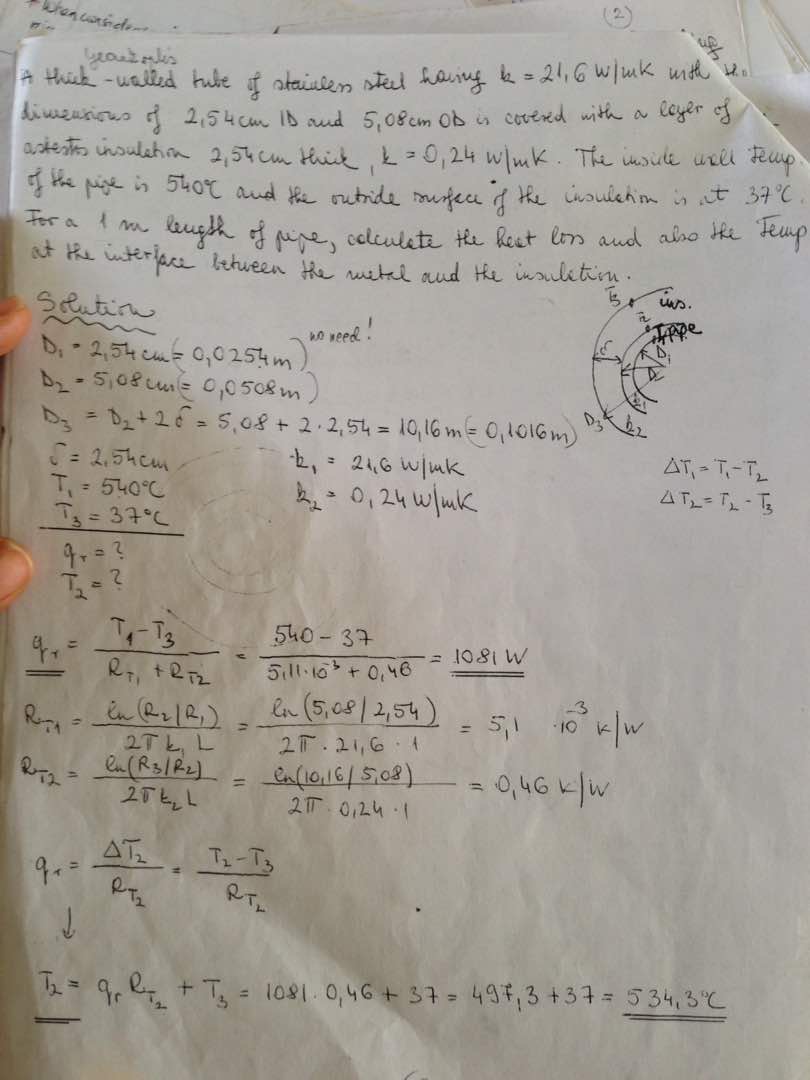 (2)
A thick-walled tube of stainless steel having k = 21,6 W/mK with the
dimensions of 2,54cm ID and 5,08cm OD is covered with a layer of
astestos insulation 2,54cm thick, k = 0,24 W/mK. The inside wall Temp.
of the pipe is 540°C and the outside surface of the insulation is at 37°C.
For a 1 m length of pipe, calculate the heat loss and also the Temp
at the interface between the metal and the insulation.
Solution
D₁ = 2,54 cm (= 0,0254 m) no need!
D₂ = 5,08 cm (= 0,0508 m)
D₃ = D₂ + 2δ = 5,08 + 2 · 2,54 = 10,16 m (= 0,1016 m)
δ = 2,54 cm k₁ = 21,6 W/mK
T₁ = 540°C k₂ = 0,24 W/mK
T₃ = 37°C
T₃ ins.
pipe
δ
D₁
D₃
k₁
k₂
ΔT₁ = T₁ - T₂
ΔT₂ = T₂ - T₃
qᵣ = ?
T₂ = ?
qᵣ = (T₁ - T₃) / (R_T₁ + R_T₂) = (540 - 37) / (5,11·10⁻³ + 0,46) = 1081 W
R_T₁ = ln(R₂/R₁) / (2π k₁ L) = ln(5,08/2,54) / (2π · 21,6 · 1) = 5,1 · 10⁻³ K/W
R_T₂ = ln(R₃/R₂) / (2π k₂ L) = ln(10,16/5,08) / (2π · 0,24 · 1) = 0,46 K/W
qᵣ = ΔT₂ / R_T₂ = (T₂ - T₃) / R_T₂
↓
T₂ = qᵣ R_T₂ + T₃ = 1081 · 0,46 + 37 = 497,3 + 37 = 534,3°C